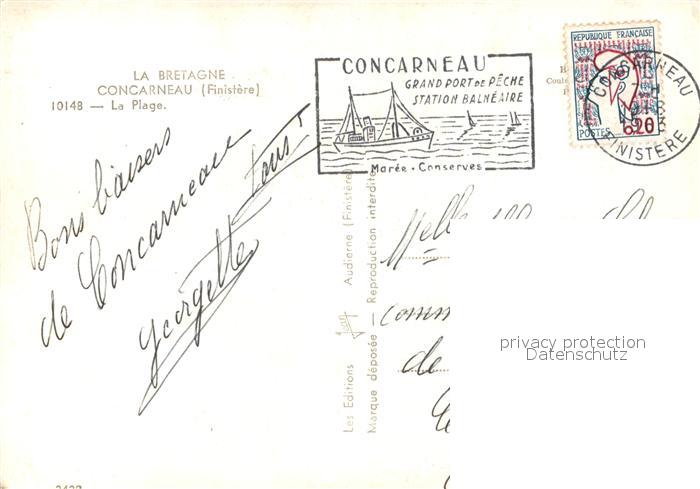 LA BRETAGNE
CONCARNEAU (Finistère)
10148 — La Plage.
CONCARNEAU
GRAND PORT DE PÊCHE
STATION BALNÉAIRE
Marée - Conserves
REPUBLIQUE FRANCAISE
POSTES 0.20
CONCARNEAU
FINISTERE
Bons baisers
de Concarneau
Georgette
Les Editions Audierne (Finistère)
Marque déposée — Reproduction interdite
Melle
comm
de
privacy protection
Datenschutz